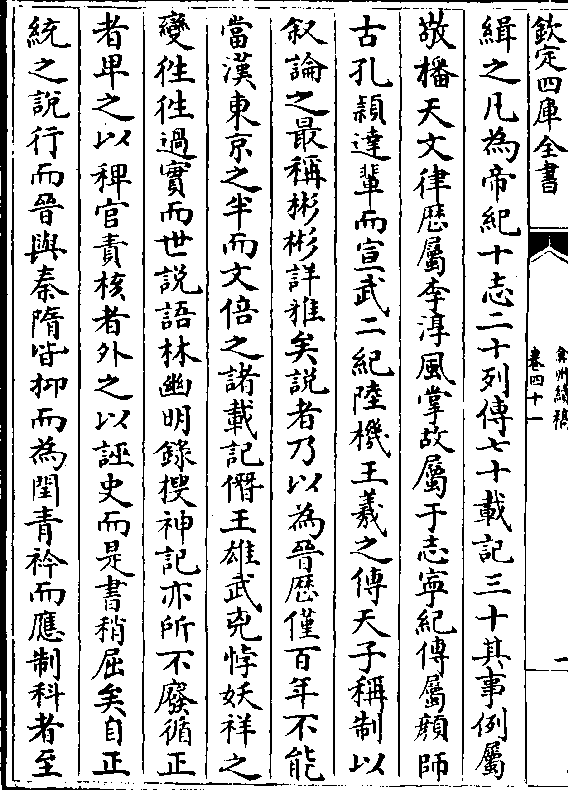 欽定四庫全書
弇州續稿
卷四十一
一
緝之凡為帝紀十志二十列傳七十載記三十其事例屬
敬播天文律歷屬李淳風掌故屬于志寧紀傳屬顔師
古孔穎達軰而宣武二紀陸機王羲之傳天子稱制以
叙論之最稱彬彬詳雅矣説者乃以為晉歴僅百年不能
當漢東京之半而文倍之諸載記僭王雄武兇悖妖祥之
變徃徃過實而世説語林幽明録搜神記亦所不廢循正
者卑之以稗官責核者外之以誣史而是書稍屈矣自正
統之説行而晉與秦隋皆抑而為閏青衿而應制科者至